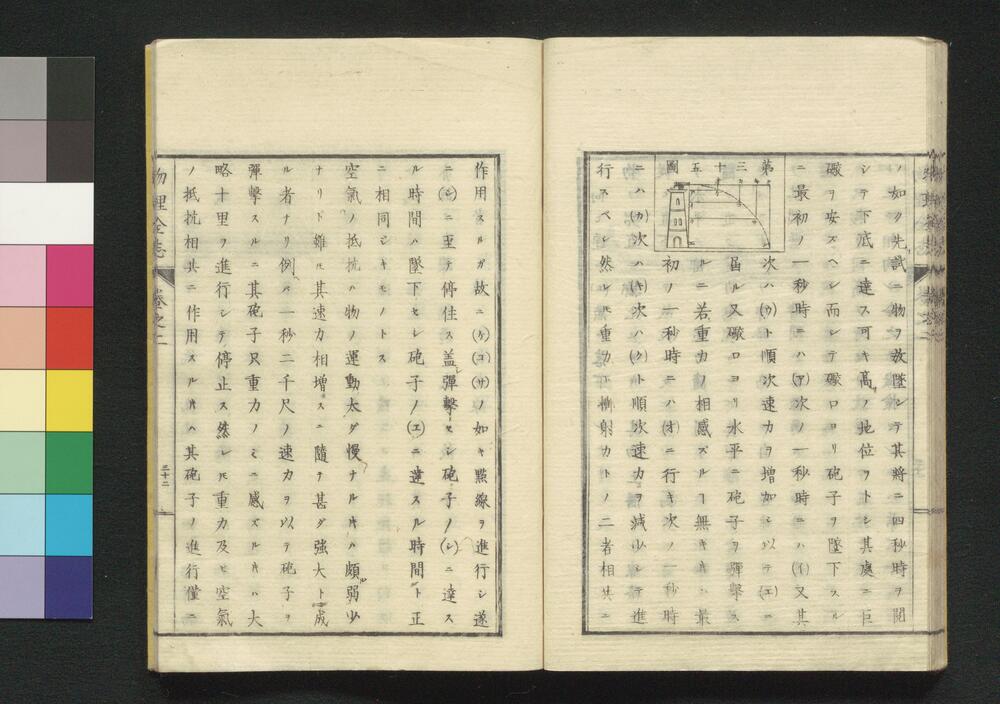 ノ如ク先試ニ物ヲ放墜シテ其將ニ四秒時ヲ閱
シテ下底ニ達ス可キ高ノ地位ヲトシ其處ニ巨
礮ヲ安ズヘシ而シテ礮口ヨリ砲子ヲ墜下スル
ニ最初ノ一秒時ニハ(ア)次ノ一秒時ニハ(イ)又其
次ハ(ウ)ト順次速力ヲ增加シ以テ(エ)ニ
屆ル又礮口ヨリ水平ニ砲子ヲ彈擊ス
ルニ若重力ノ相感ズルヿ無キキハ最
初ノ一秒時ニハ(オ)ニ行キ次ノ一秒時
第三十五圖
ニハ(カ)次ハ(キ)次ハ(ク)ト順次速力ヲ減少シテ進
行スベシ然レ𪜈重力ト抛射力トノ二者相共ニ
作用スルガ故ニ(ケ)(コ)(サ)ノ如キ點線ヲ進行シ遂
ニ(シ)ニ至テ停住ス盖彈擊セシ砲子ノ(シ)ニ達ス
ル時間ハ墜下セシ砲子ノ(エ)ニ達スル時間ト正
ニ相同シキモノトス
空氣ノ抵抗ハ物ノ運動太ダ慢ナルキハ頗弱少
ナリト雖𪜈其速力相增スニ隨テ甚ダ強大ト成
ル者ナリ例バ一秒二千尺ノ速力ヲ以テ砲子ヲ
彈擊スルニ其砲子只重力ノミニ感ズルキハ大
略十里ヲ進行シテ停止ス然レ𪜈重力及ヒ空氣
ノ抵抗相共ニ作用スルキハ其砲子ノ進行僅ニ
物理全志 卷之二
三十二